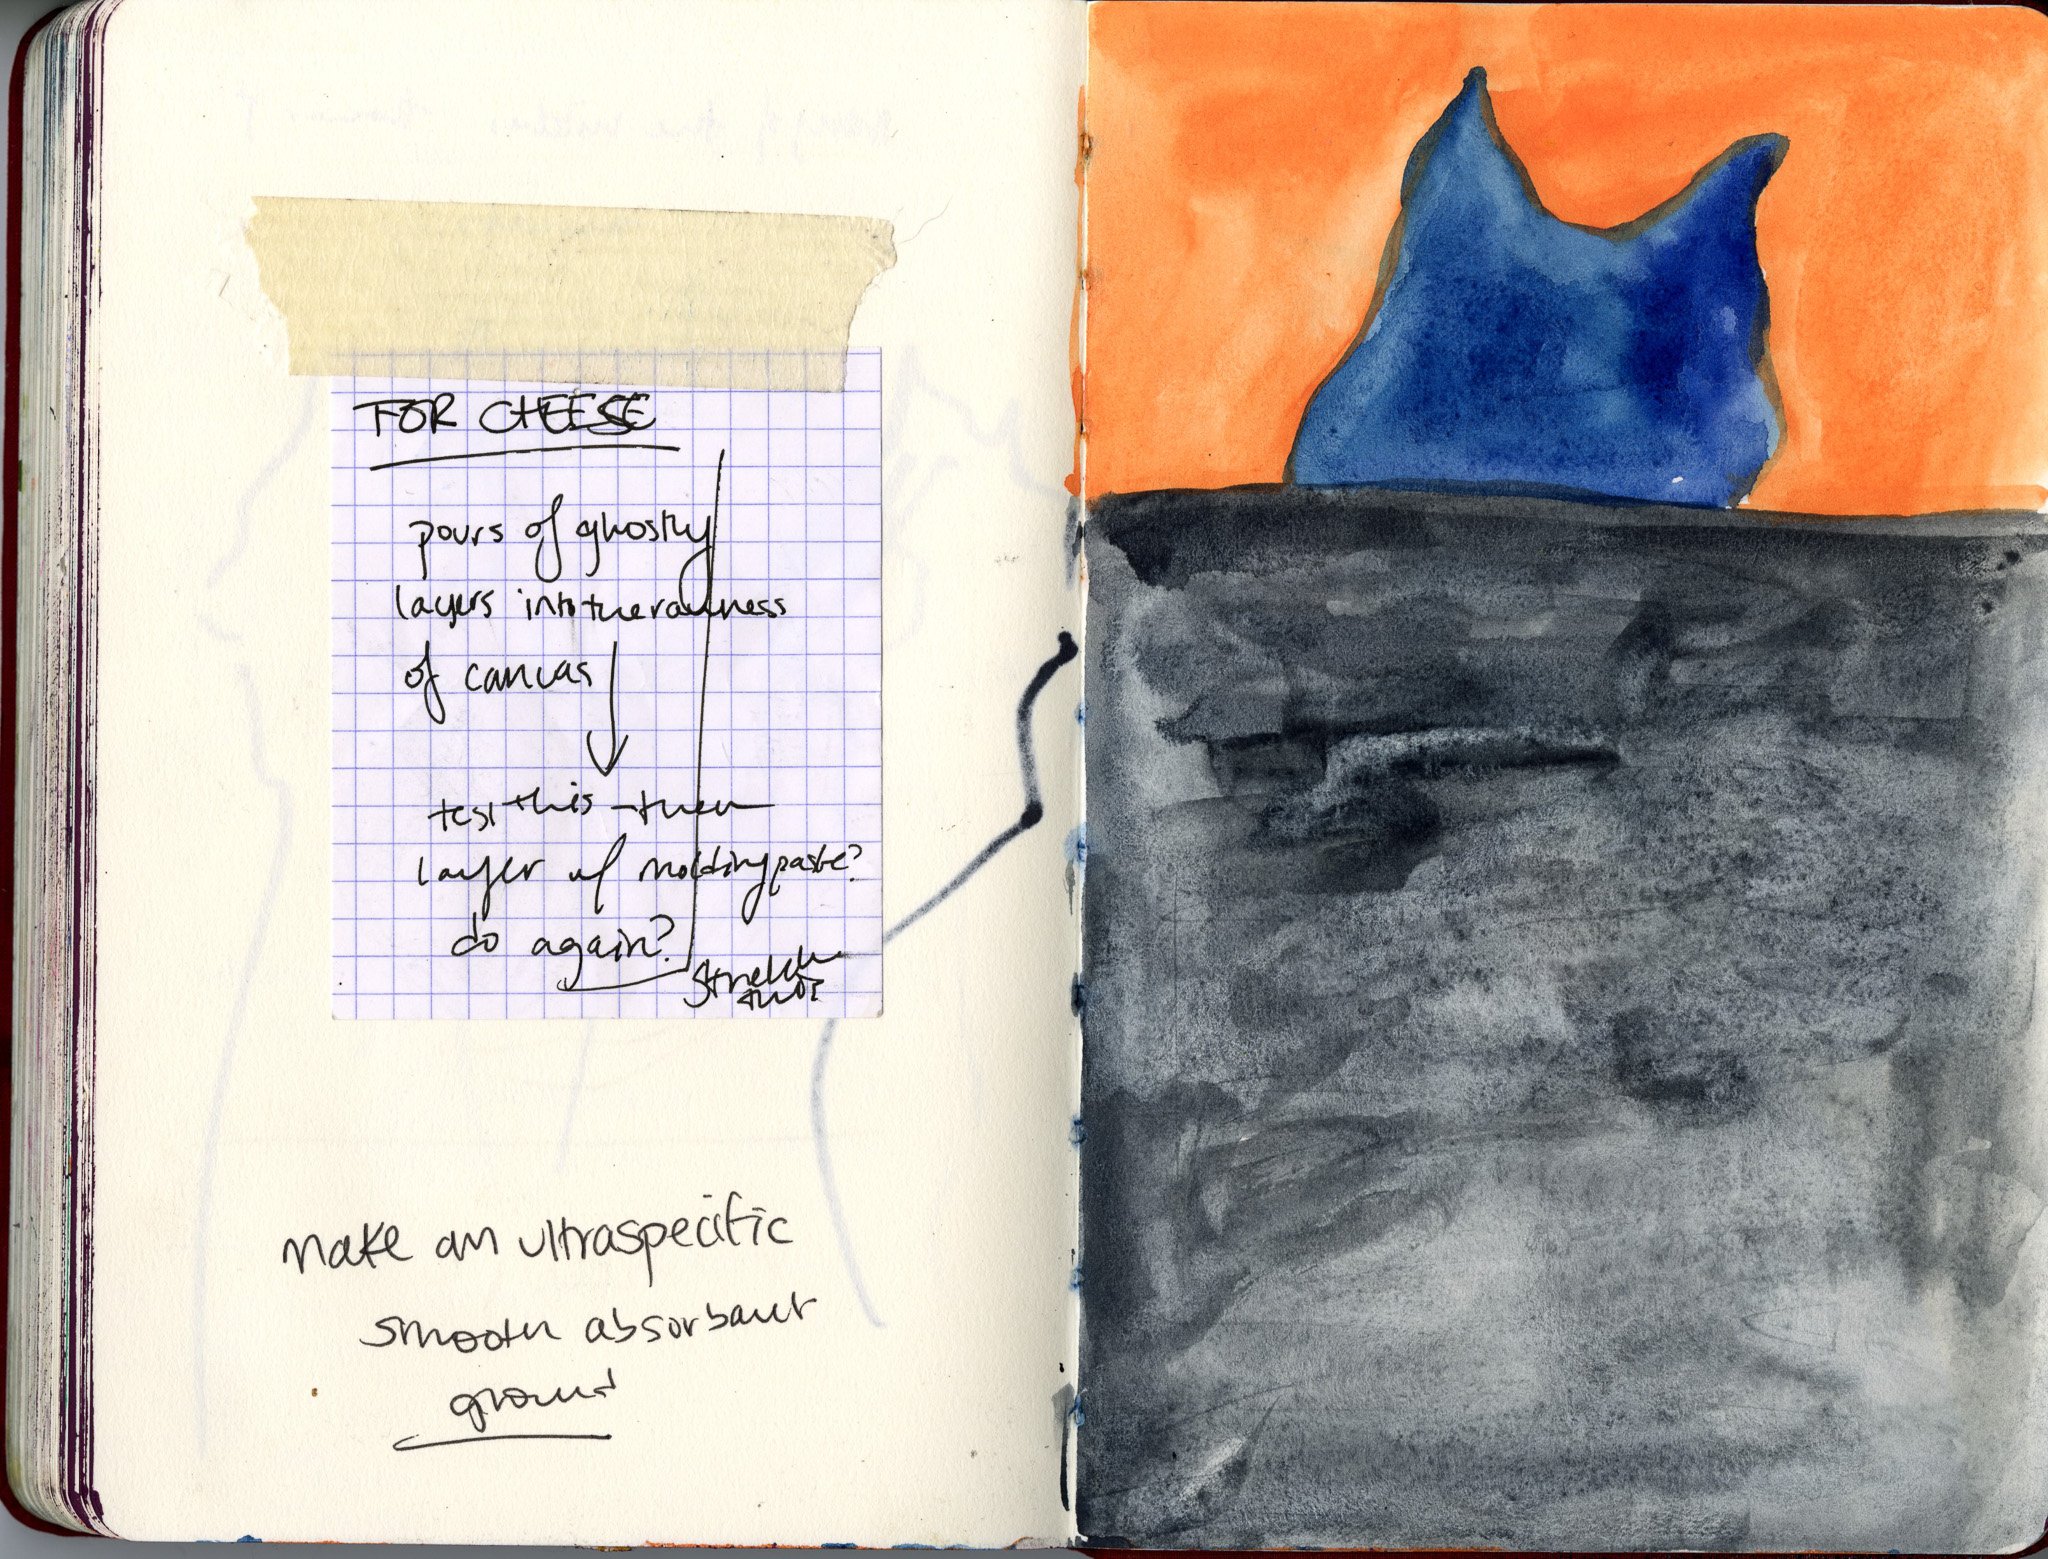 FOR CHEESE
pours of ghostly
layers into the rawness
of canvas
test this - then
layer of molding paste?
do again?
stretch
this?
make an ultraspecific
smooth absorbant
ground